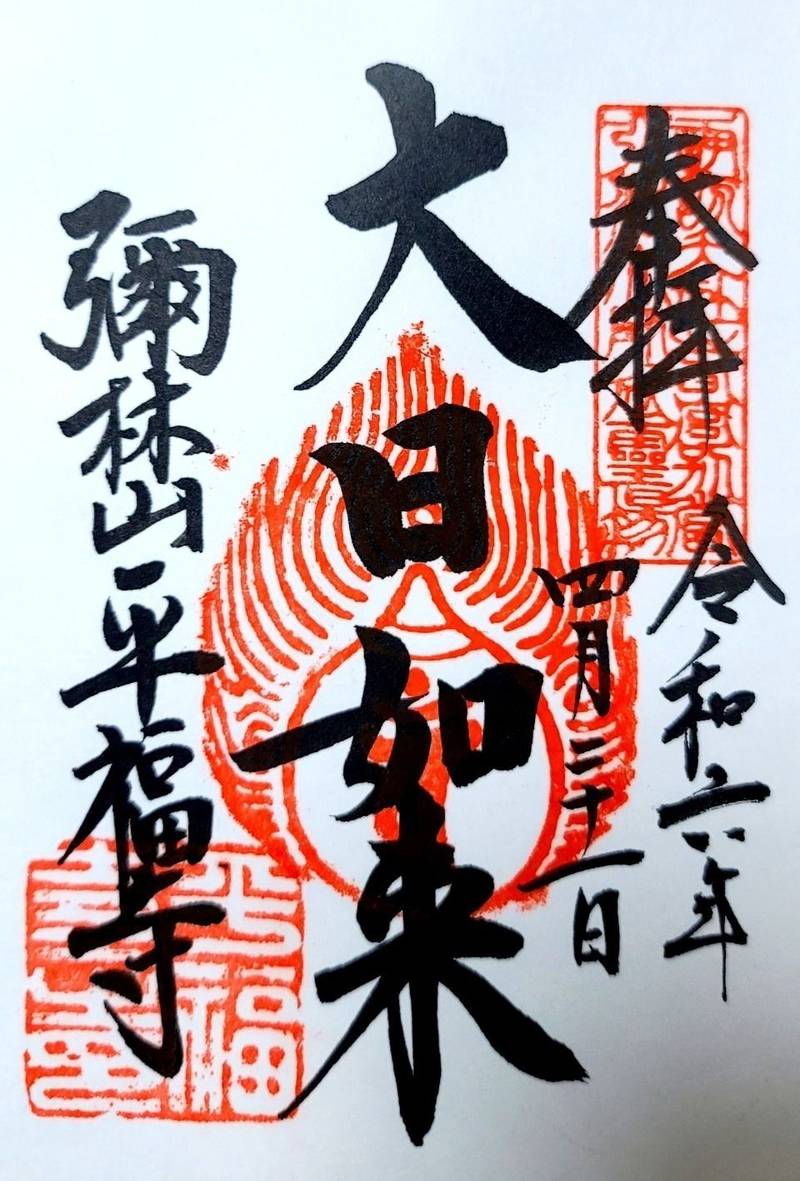 奉拝
令和六年
四月二十一日
大日如来
彌林山平福寺